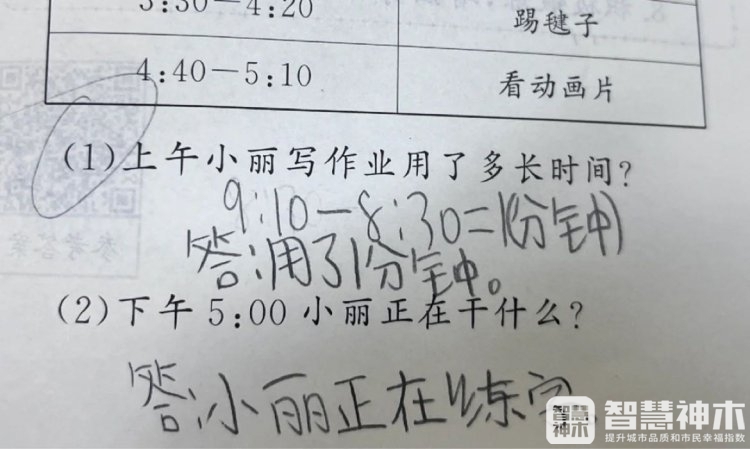 3:30—4:20
踢毽子
4:40—5:10
看动画片
(1)上午小丽写作业用了多长时间?
9:10-8:30=1(分钟)
答:用了1分钟。
参考答案
(2)下午5:00小丽正在干什么?
答:小丽正在练字
智慧神木
智慧神木
提升城市品质和市民幸福指数